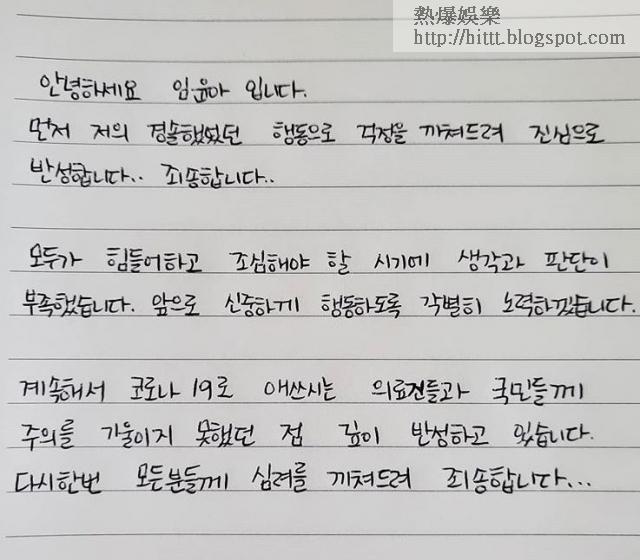 熱爆娛樂
http://hittt.blogspot.com
안녕하세요 임윤아 입니다.
먼저 저의 경솔했었던 행동으로 걱정을 끼쳐드려 진심으로
반성합니다.. 죄송합니다..
모두가 힘들어하고 조심해야 할 시기에 생각과 판단이
부족했습니다. 앞으로 신중하게 행동하도록 각별히 노력하겠습니다.
계속해서 코로나 19로 애쓰시는 의료진들과 국민들께
주의를 기울이지 못했던 점 깊이 반성하고 있습니다.
다시한번 모든분들께 심려를 끼쳐드려 죄송합니다...